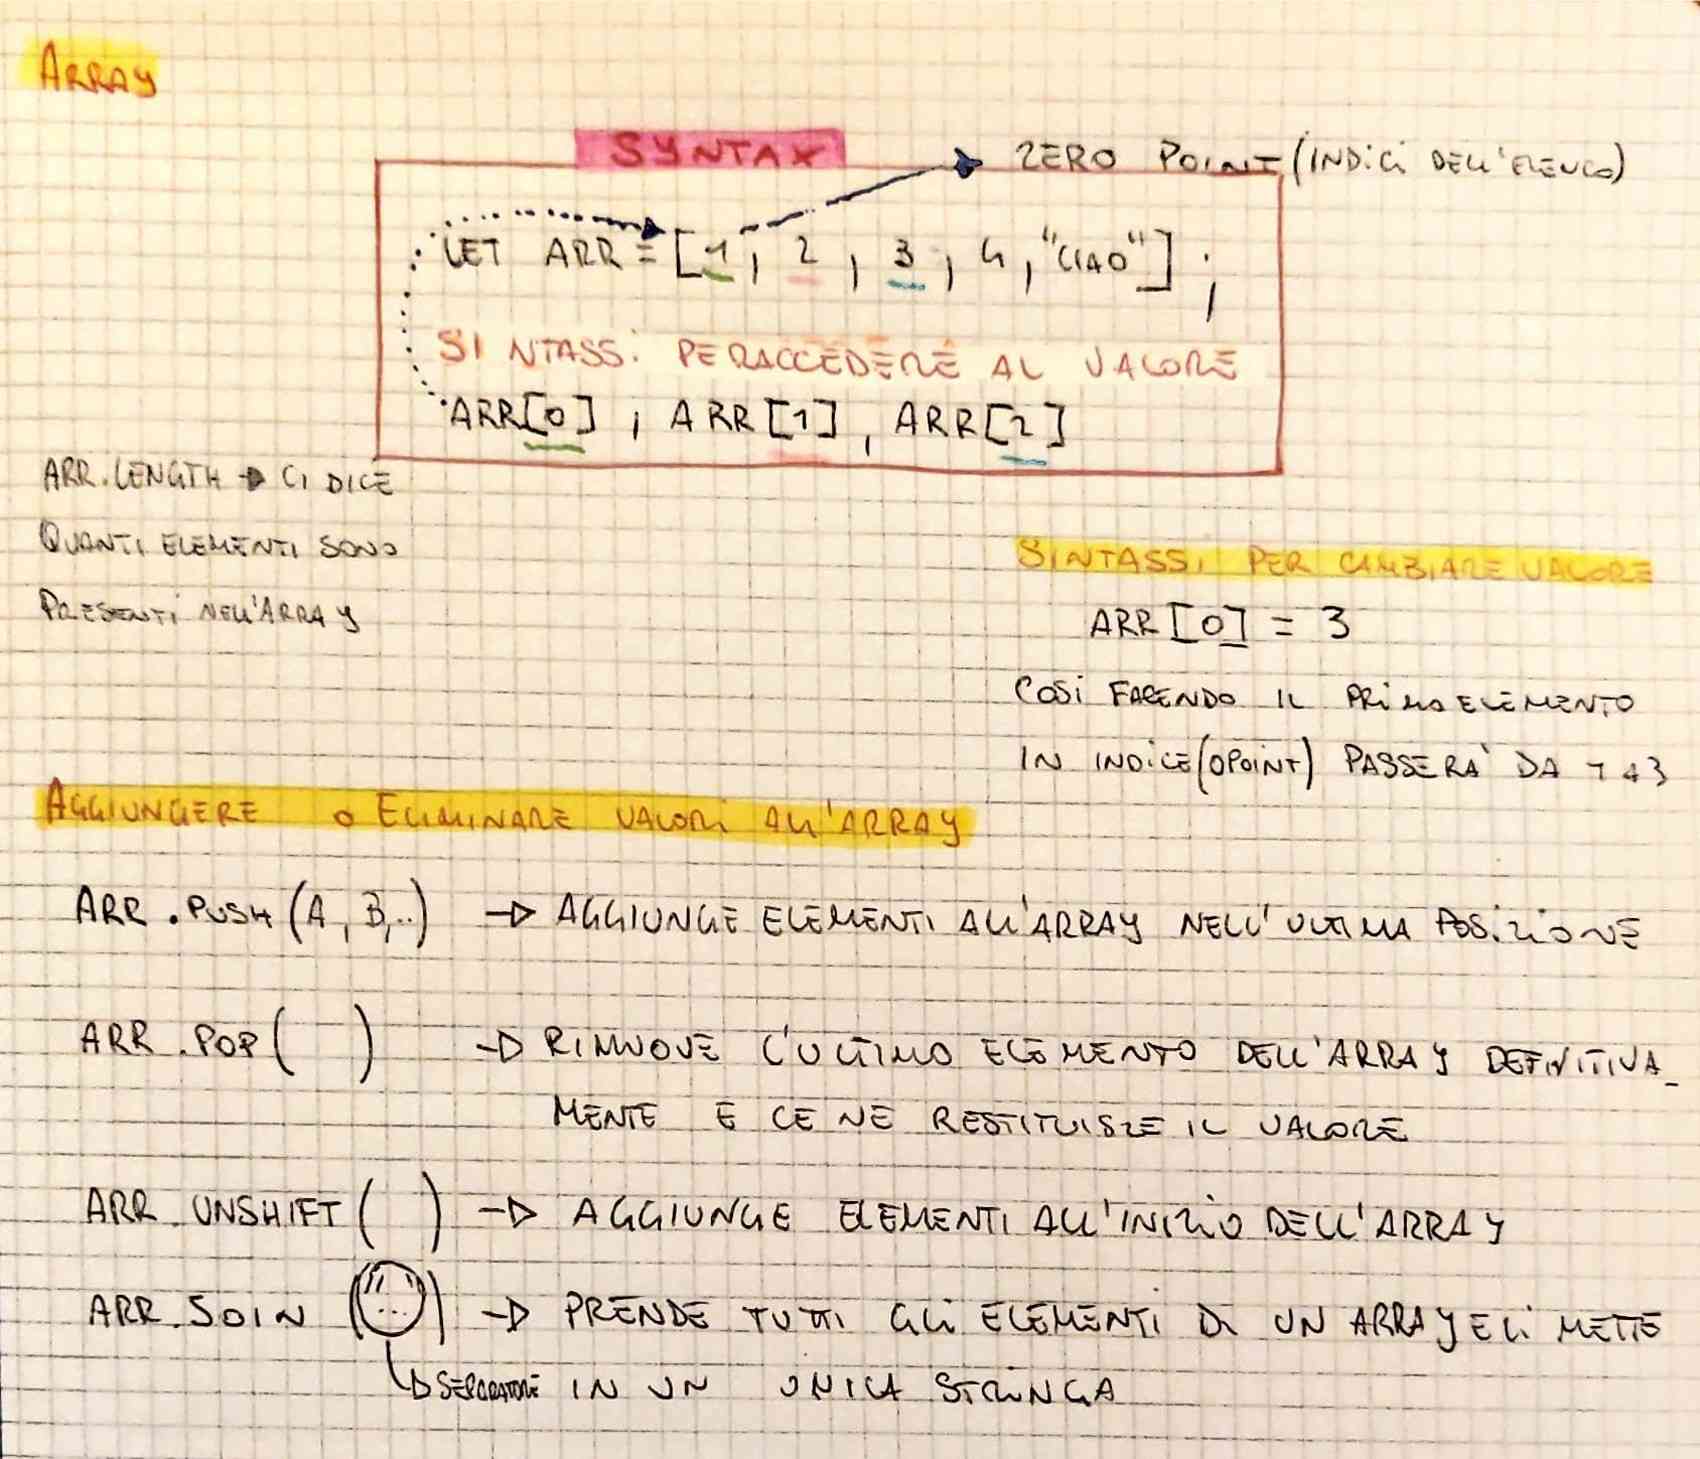 ARRAY
SYNTAX
ZERO POINT (INDICI DELL'ELENCO)
LET ARR = [1, 2, 3, 4, "CIAO"];
SINTASSI PER ACCEDERE AL VALORE
ARR[0], ARR[1], ARR[2]
ARR.LENGTH → CI DICE
QUANTI ELEMENTI SONO
PRESENTI NELL'ARRAY
SINTASSI PER CAMBIARE VALORE
ARR[0] = 3
COSI FACENDO IL PRIMO ELEMENTO
IN INDICE (0POINT) PASSERA' DA 1 A 3
AGGIUNGERE o ELIMINARE VALORI ALL'ARRAY
ARR.PUSH(A, B,..) → AGGIUNGE ELEMENTI ALL'ARRAY NELL'ULTIMA POSIZIONE
ARR.POP( ) → RIMUOVE L'ULTIMO ELEMENTO DELL'ARRAY DEFINITIVA-
MENTE E CE NE RESTITUISCE IL VALORE
ARR.UNSHIFT( ) → AGGIUNGE ELEMENTI ALL'INIZIO DELL'ARRAY
ARR.JOIN ("...") → PRENDE TUTTI GLI ELEMENTI DI UN ARRAY E LI METTE
SEPARATORE IN UN UNICA STRINGA